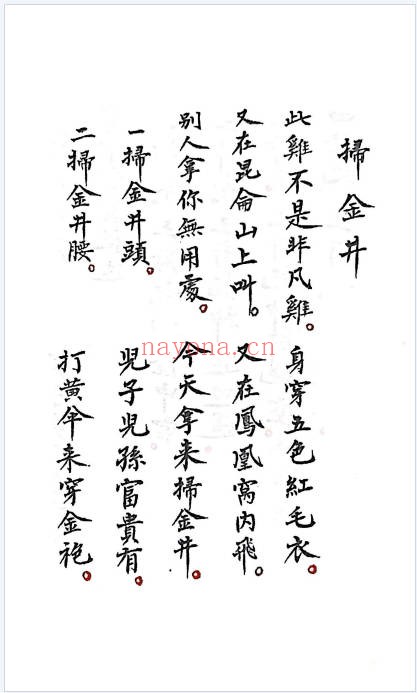 掃金井
此雞不是非凡雞。身穿五色紅毛衣。
又在昆侖山上叫。又在鳳凰窩内飛。
别人拿你無用處。今天拿来掃金井。
一掃金井頭。児子児孫富貴有。
二掃金井腰。打黄伞来穿金袍。
nayona.cn